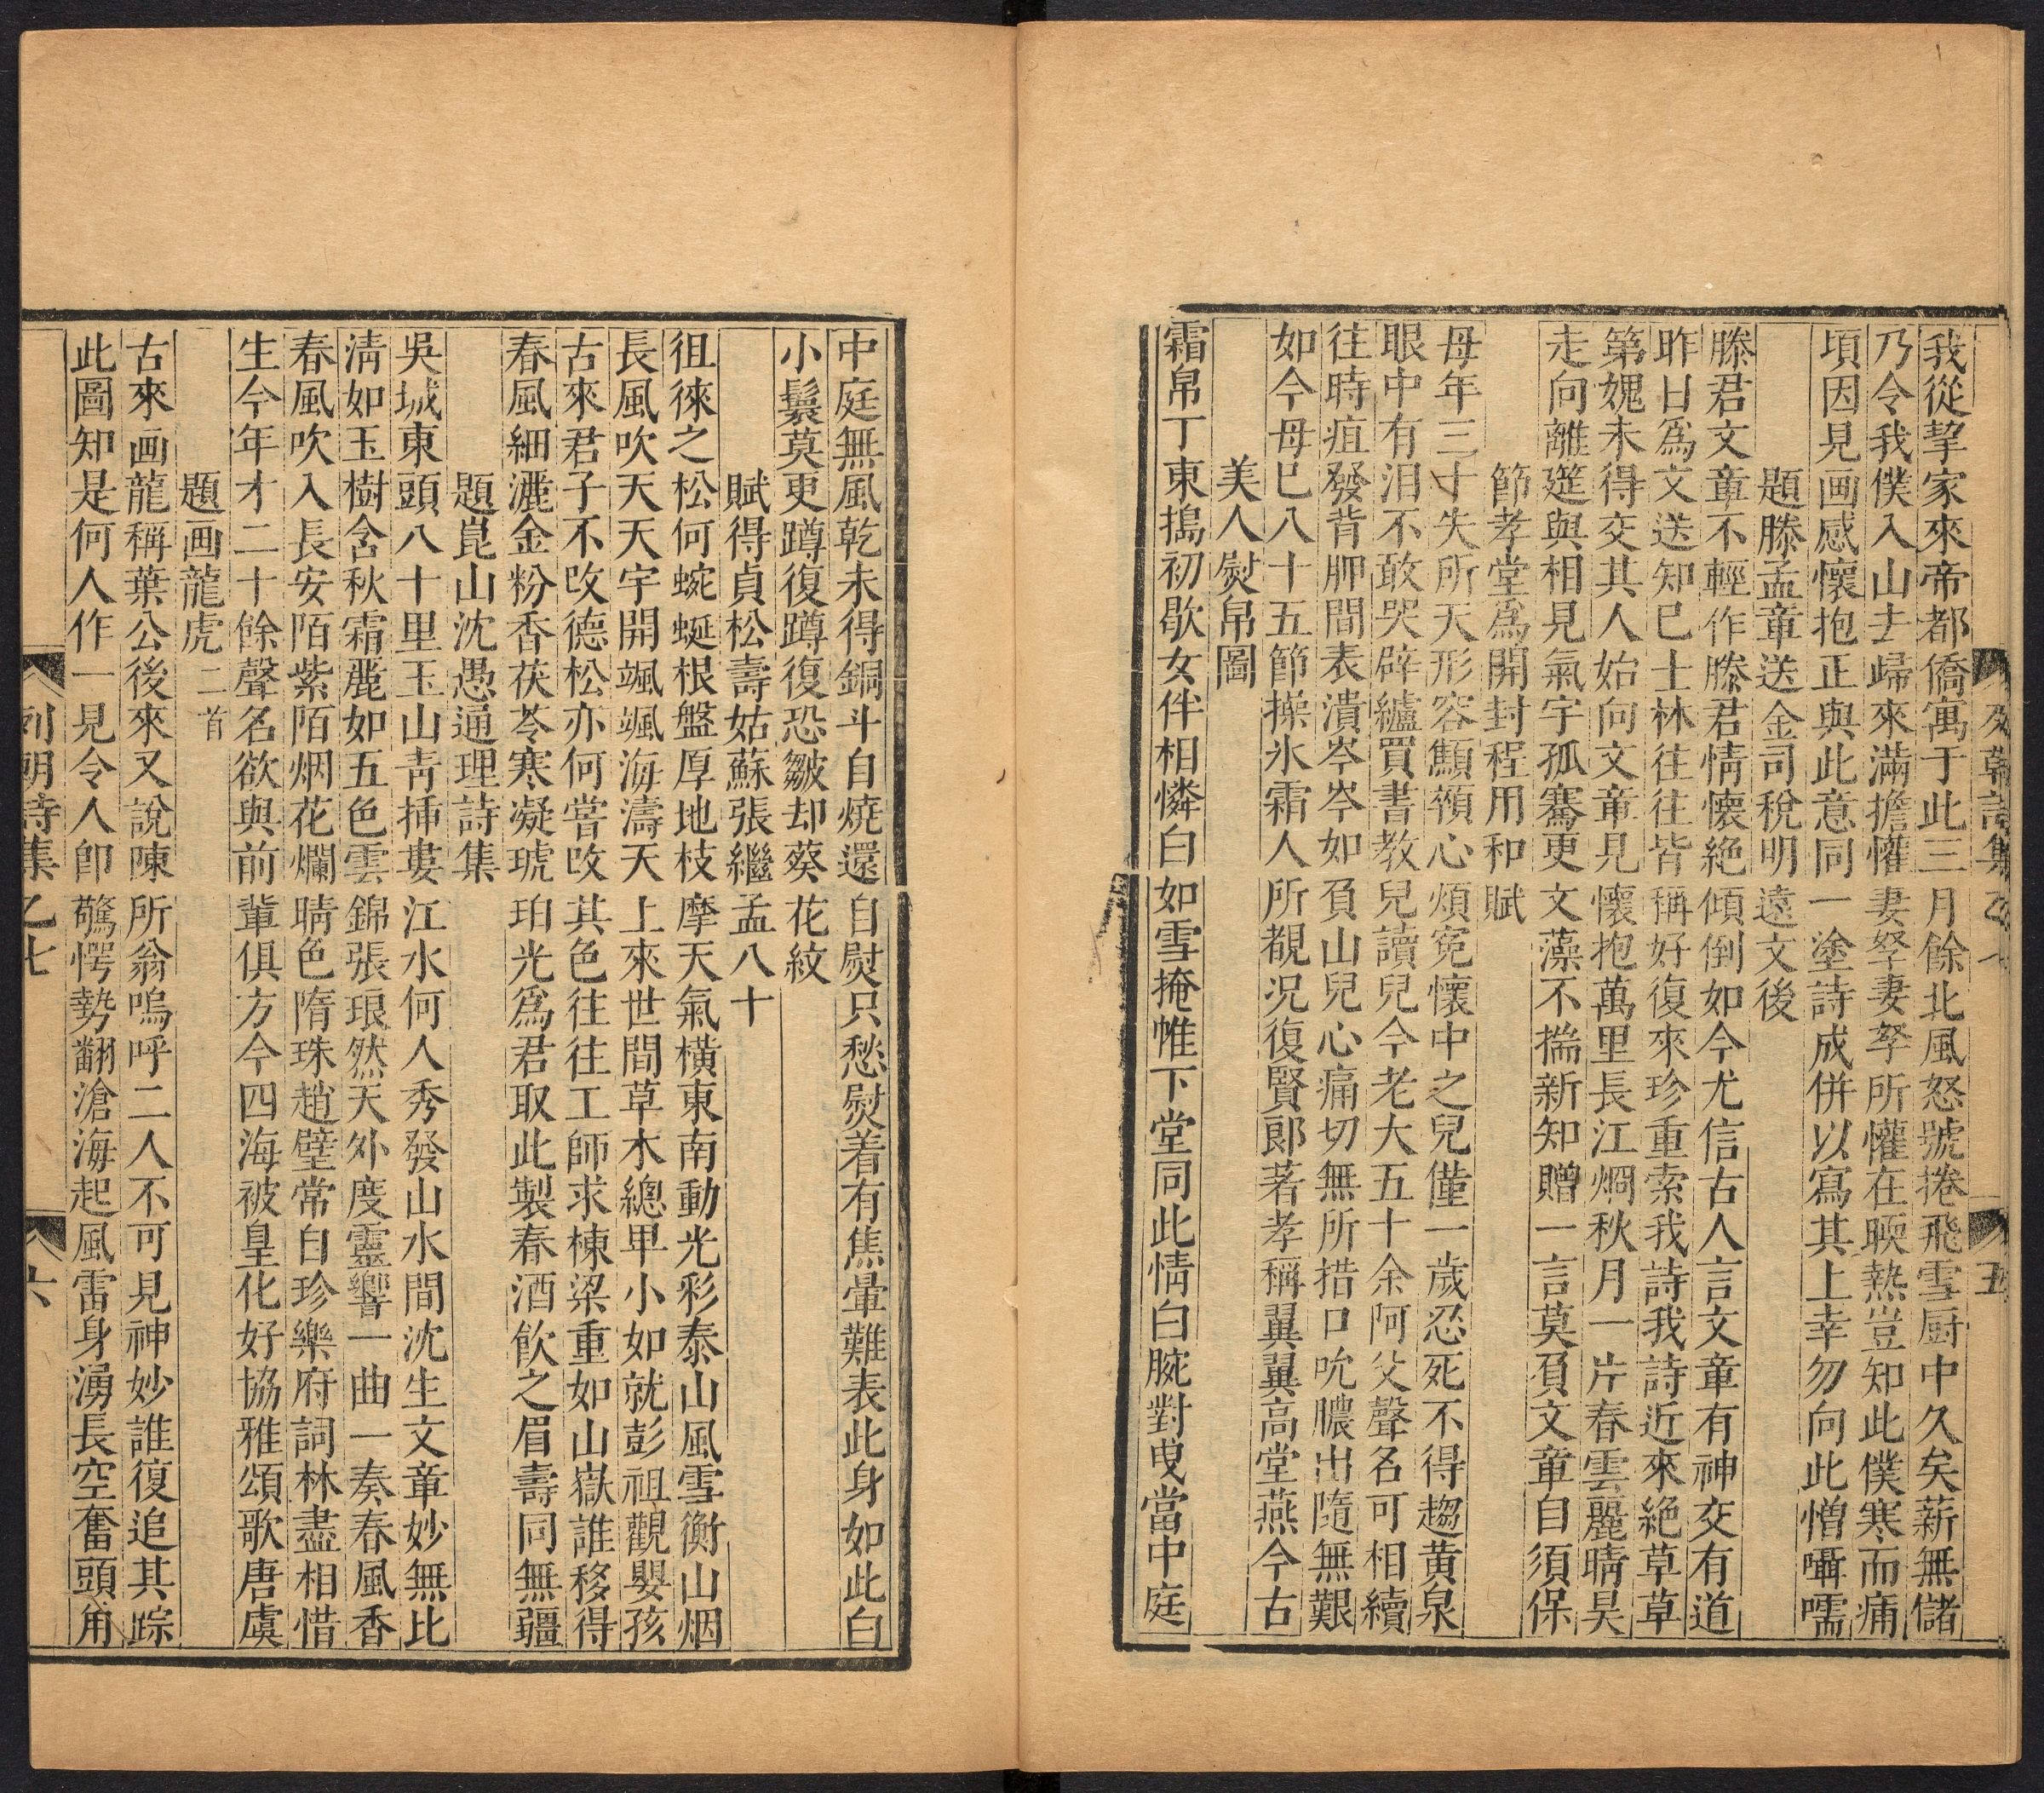 我從挈家來帝都僑寓于此三月餘北風怒號捲飛雪厨中久矣薪無儲
乃令我僕入山去歸來滿擔懽妻孥妻孥所懽在䎡熱豈知此僕寒而痡
頃因見画感懷抱正與此意同一塗詩成併以寫其上幸勿向此憎囁嚅
題滕孟章送金司稅明遠文後
滕君文章不輕作滕君情懷絶傾倒如今尤信古人言文章有神交有道
昨日爲文送知巳士林往往皆稱好復來珍重索我詩我詩近來絶草草
第媿未得交其人始向文章見懷抱萬里長江烱秋月一片春雲麗晴昊
走向離筵與相見氣宇孤騫更文藻不揣新知贈一言莫負文章自須保
節孝堂爲開封程用和賦
母年三十失所天形容顦顇心煩寃懷中之兒僅一歲忍死不得趨黄泉
眼中有泪不敢哭辟纑買書教兒讀兒今老大五十余阿父聲名可相續
往時疽發背胛間表潰岑岑如負山兒心痛切無所措口吮膿出隨無艱
如今母巳八十五節操氷霜人所覩況復賢郎著孝稱翼翼高堂燕今古
美人熨帛圖
霜帛丁東搗初歇女伴相憐白如雪掩帷下堂同此情白腕對曳當中庭
列朝詩集 乙七 五
中庭無風乾未得銅斗自燒還自熨只愁熨着有焦暈難表此身如此白
小鬟莫更蹲復蹲復恐皺却葵花紋
賦得貞松壽姑蘇張繼孟八十
徂徠之松何蜿蜒根盤厚地枝摩天氣橫東南動光彩泰山風雪衡山烟
長風吹天天宇開颯颯海濤天上來世間草木總甲小如就彭祖觀嬰孩
古來君子不改德松亦何嘗改其色往往工師求棟梁重如山嶽誰移得
春風細灑金粉香茯苓寒凝琥珀光爲君取此製春酒飲之眉壽同無疆
題崑山沈愚通理詩集
吳城東頭八十里玉山靑揷婁江水何人秀發山水間沈生文章妙無比
淸如玉樹含秋霜麗如五色雲錦張琅然天外度靈響一曲一奏春風香
春風吹入長安陌紫陌烟花爛晴色隋珠趙璧常自珍樂府詞林盡相惜
生今年才二十餘聲名欲與前輩俱方今四海被皇化好協雅頌歌唐虞
題画龍虎二首
古來画龍稱葉公後來又說陳所翁嗚呼二人不可見神妙誰復追其踪
此圖知是何人作一見令人卽驚愕勢翻滄海起風雷身湧長空奮頭角
列朝詩集 乙七 六